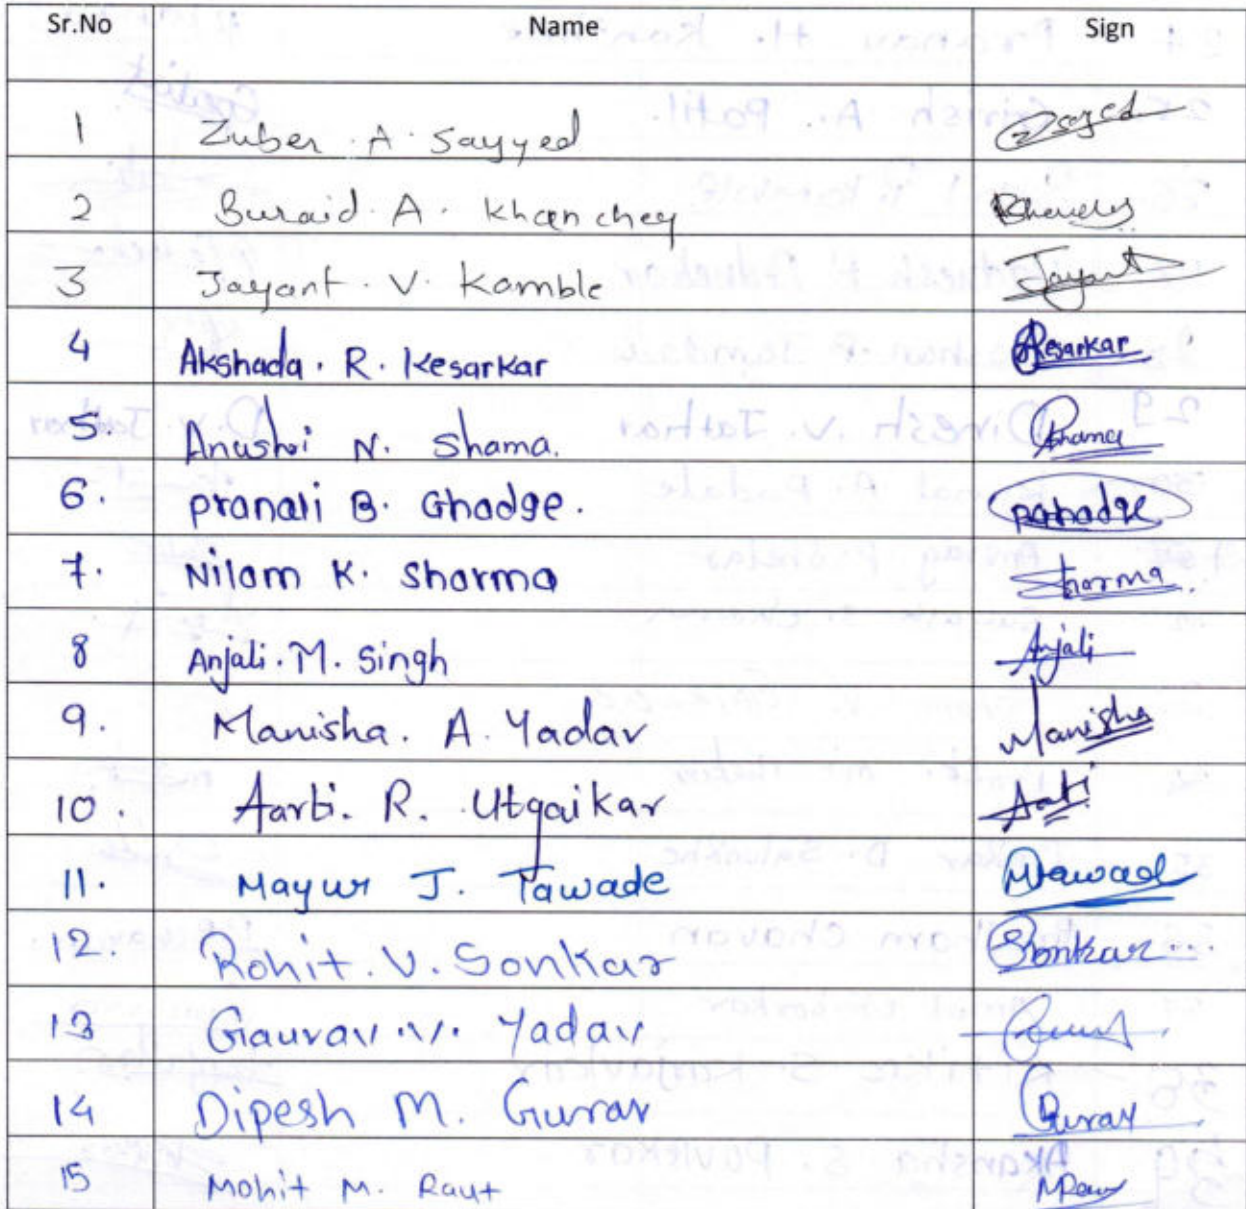 Sr.No Name Sign
1 Zuber .A. Sayyed Sayed
2 Buraid. A. Khanchey
3 Jayant. V. Kamble Jayant
4 Akshada. R. Kesarkar Kesarkar
5. Anushri N. Shama. Shama
6. Pranali B. Ghadge. PGhadge
7. Nilam K. Sharma Sharma.
8 Anjali. M. Singh Anjali
9. Manisha. A. Yadav Manisha
10. Aarti. R. Utgaikar Aarti
11. Mayur J. Tawade MTawade
12. Rohit. V. Sonkar Sonkar...
13 Gaurav .V. Yadav
14 Dipesh M. Gurav Gurav
15 Mohit M. Raut